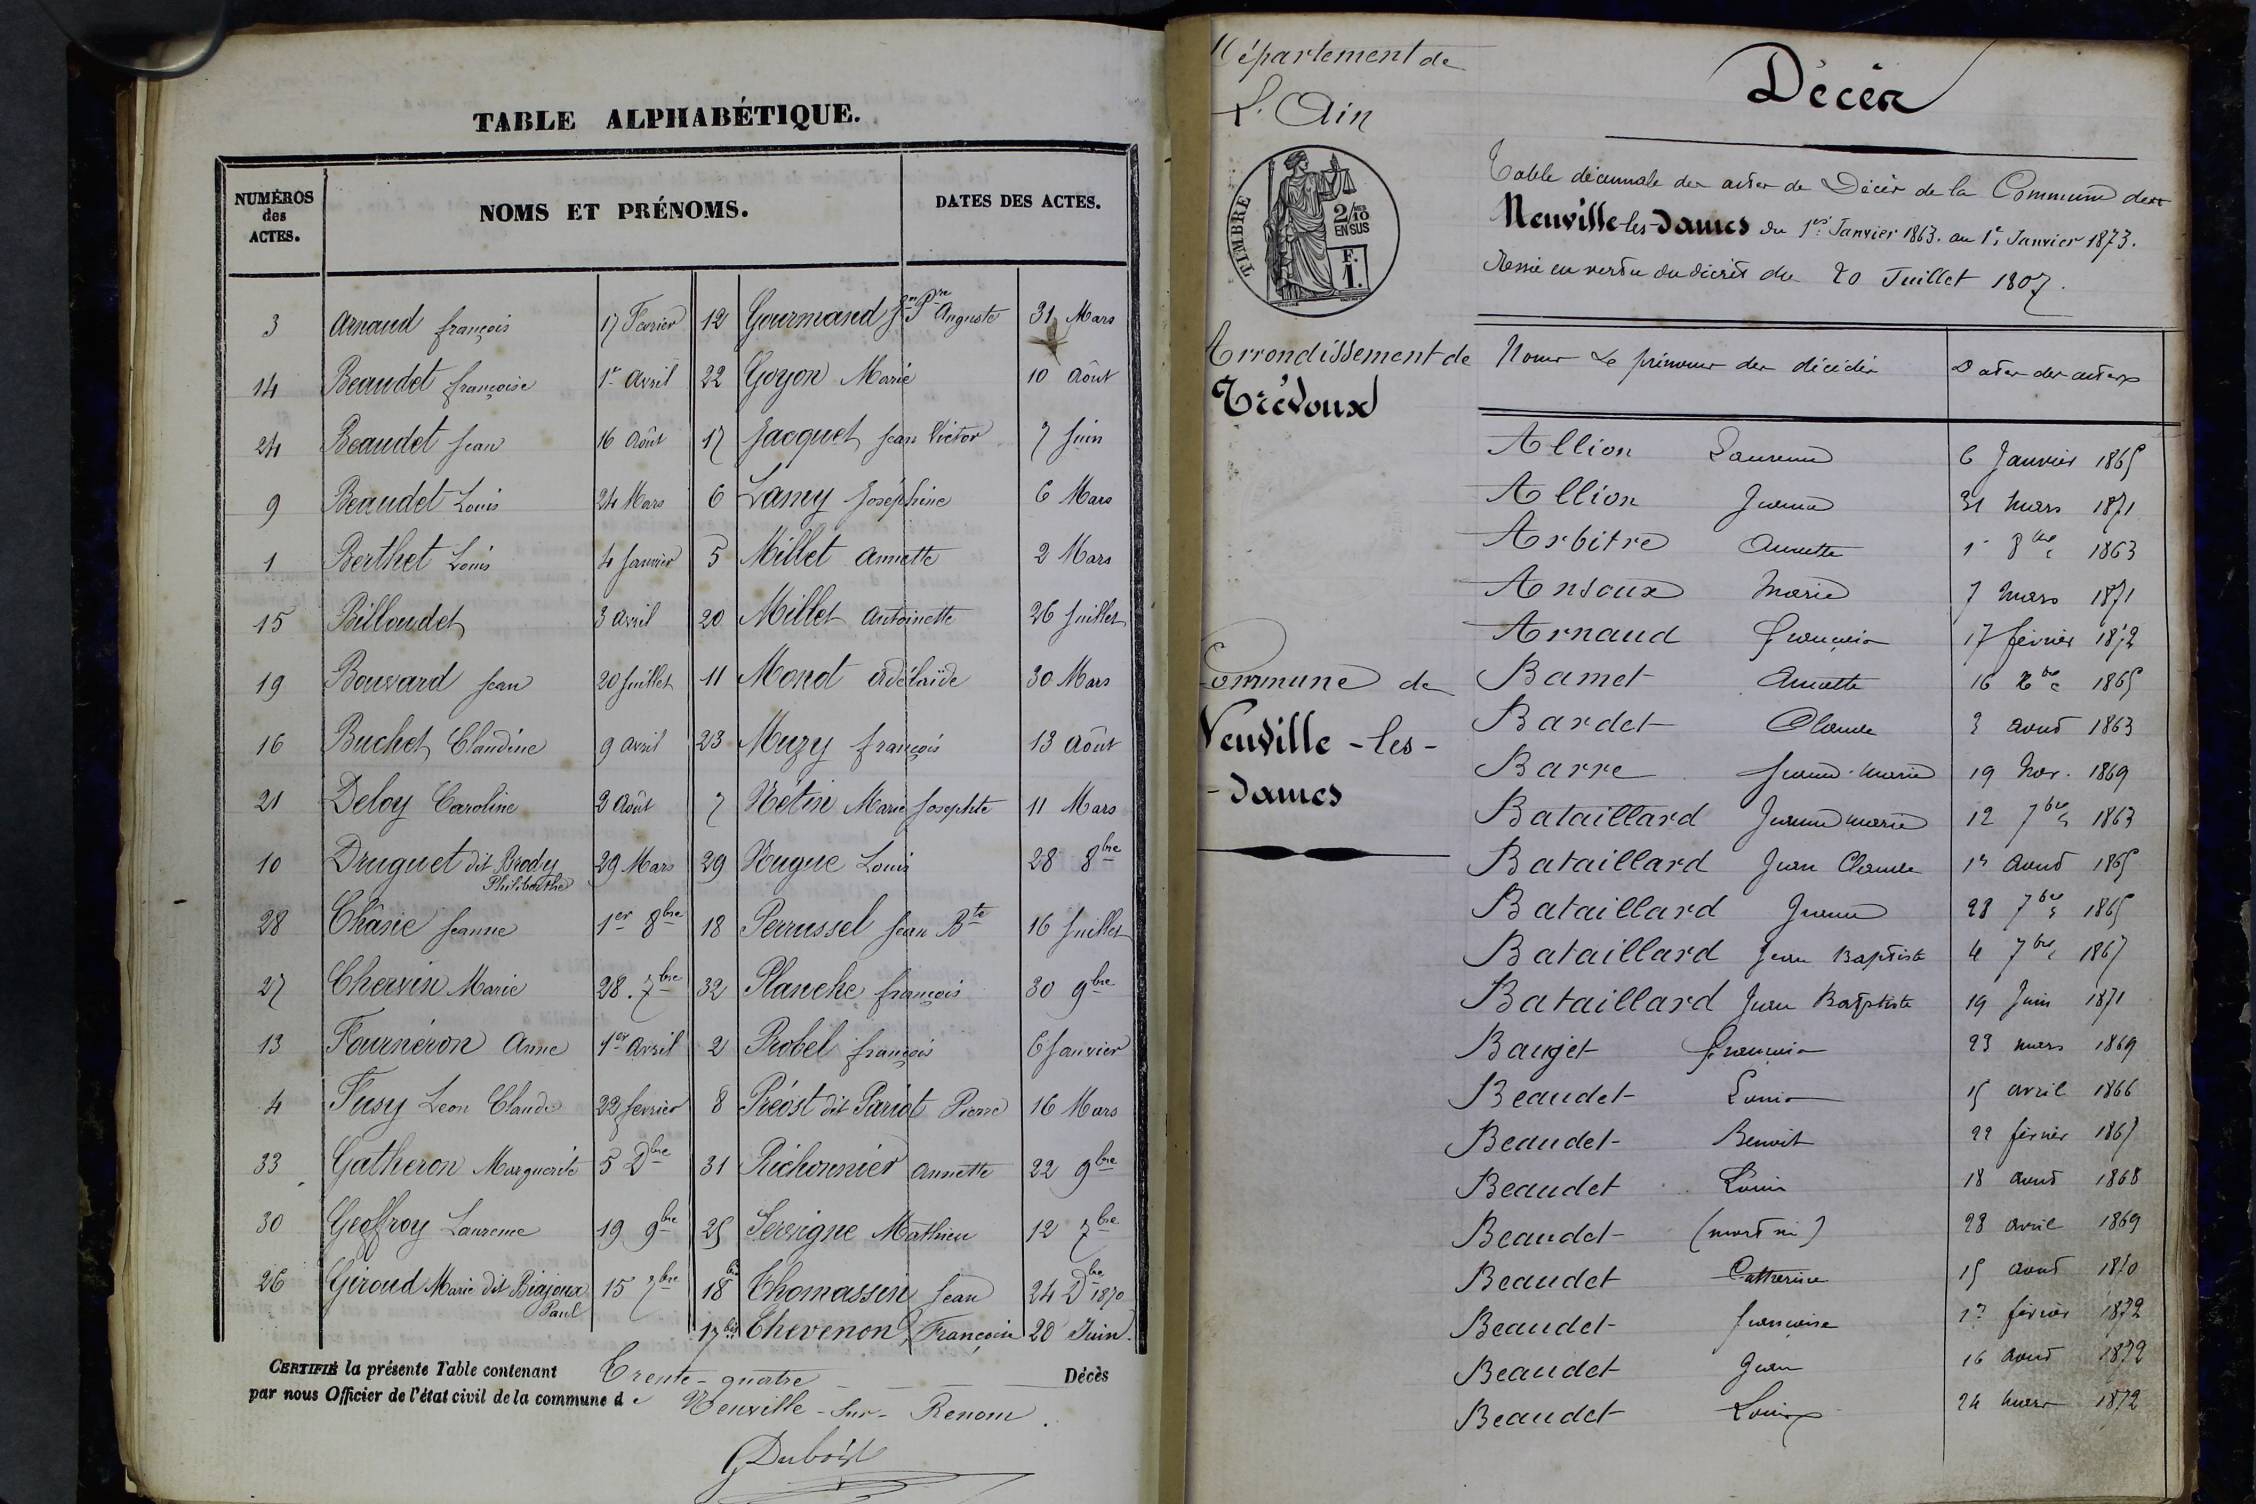 TABLE ALPHABÉTIQUE.
NUMÉROS
des
ACTES.
NOMS ET PRÉNOMS.
DATES DES ACTES.
3 Arnaud françois 17 Fevrier
14 Beaudet françoise 1er avril
24 Beaudet Jean 16 Août
9 Beaudet Louis 24 Mars
1 Berthet Louis 4 Janvier
15 Billoudet 3 avril
19 Bouvard Jean 20 Juillet
16 Buchet Claudine 9 avril
21 Deloy Caroline 2 Août
10 Druguet dit Brody 29 Mars
Philiberthe
28 Châne Jeanne 1er 8bre
27 Chervin Marie 28. 7bre
13 Fournéron Anne 1er avril
4 Fusy Leon Claude 22 fevrier
33 Gatheron Marguerite 5 Dbre
30 Geoffroy Laurence 19 9bre
26 Giroud Marie dit Biajoux 15 7bre
Paul
12 Gourmand Jn Pre Auguste 31 Mars
22 Goyon Marie 10 Août
17 Jacquet Jean Victor 7 Juin
6 Lamy Joséphine 6 Mars
5 Millet Annette 2 Mars
20 Millet Antoinette 26 Juillet
11 Monot Adélaïde 30 Mars
23 Muzy françois 13 Août
7 Nétin Marie Josephte 11 Mars
29 Nugue Louis 28 8bre
18 Perrussel Jean Bte 16 Juillet
32 Planche françois 30 9bre
2 Probel françois 6 Janvier
8 Prévost dit Pariot Pierre 16 Mars
31 Richonnier Annette 22 9bre
25 Servigne Mathieu 12 7bre
18 bis Thomassin Jean 24 Dbre 1870
17 bis Thevenon François 20 Juin.
CERTIFIÉ la présente Table contenant Trente-quatre Décès
par nous Officier de l'état civil de la commune de Neuville-sur-Renom.
Dubost
Département de
L'Ain
TIMBRE
2/10
EN SUS
F.
1.
Arrondissement de
Trévoux
Commune de
Neuville-les-
-Dames
Décès
Table décennale des actes de Décès de la Commune de
Neuville-les-Dames du 1er Janvier 1863. au 1er Janvier 1873.
Dressé en vertu du décret du 20 Juillet 1807.
Noms & prénoms des décédés Dates des actes
Allion Laurence 6 Janvier 1865
Allion Jeanne 31 mars 1871
Arbitre Annette 1er 8bre 1863
Ansoux Marie 7 mars 1871
Arnaud François 17 février 1872
Bamet Annette 16 Xbre 1865
Bardet Claude 2 aout 1863
Barre Jeanne-Marie 19 Nov. 1869
Bataillard Jeanne Marie 12 7bre 1863
Bataillard Jean Claude 1er aout 1865
Bataillard Jeanne 28 7bre 1865
Bataillard Jean Baptiste 4 7bre 1867
Bataillard Jean Baptiste 19 Juin 1871
Baujet François 23 mars 1869
Beaudet Louis 15 avril 1866
Beaudet Benoit 22 février 1867
Beaudet Louis 18 aout 1868
Beaudet (mort né) 28 avril 1869
Beaudet Catherine 15 aout 1870
Beaudet françoise 1er février 1872
Beaudet Jean 16 aout 1872
Beaudet Louis 24 mars 1872